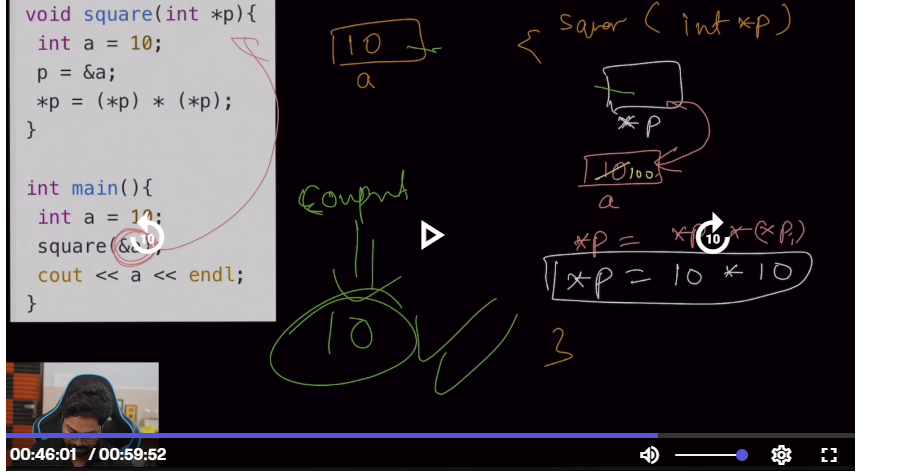 void square(int *p){
int a = 10;
p = &a;
*p = (*p) * (*p);
}
int main(){
int a = 10;
square(&a);
cout << a << endl;
}
10
a
{ squer ( int *p)
* p
10 100
a
*p = *p * (*p)
*p = 10 * 10
3
10
10
10
00:46:01 / 00:59:52